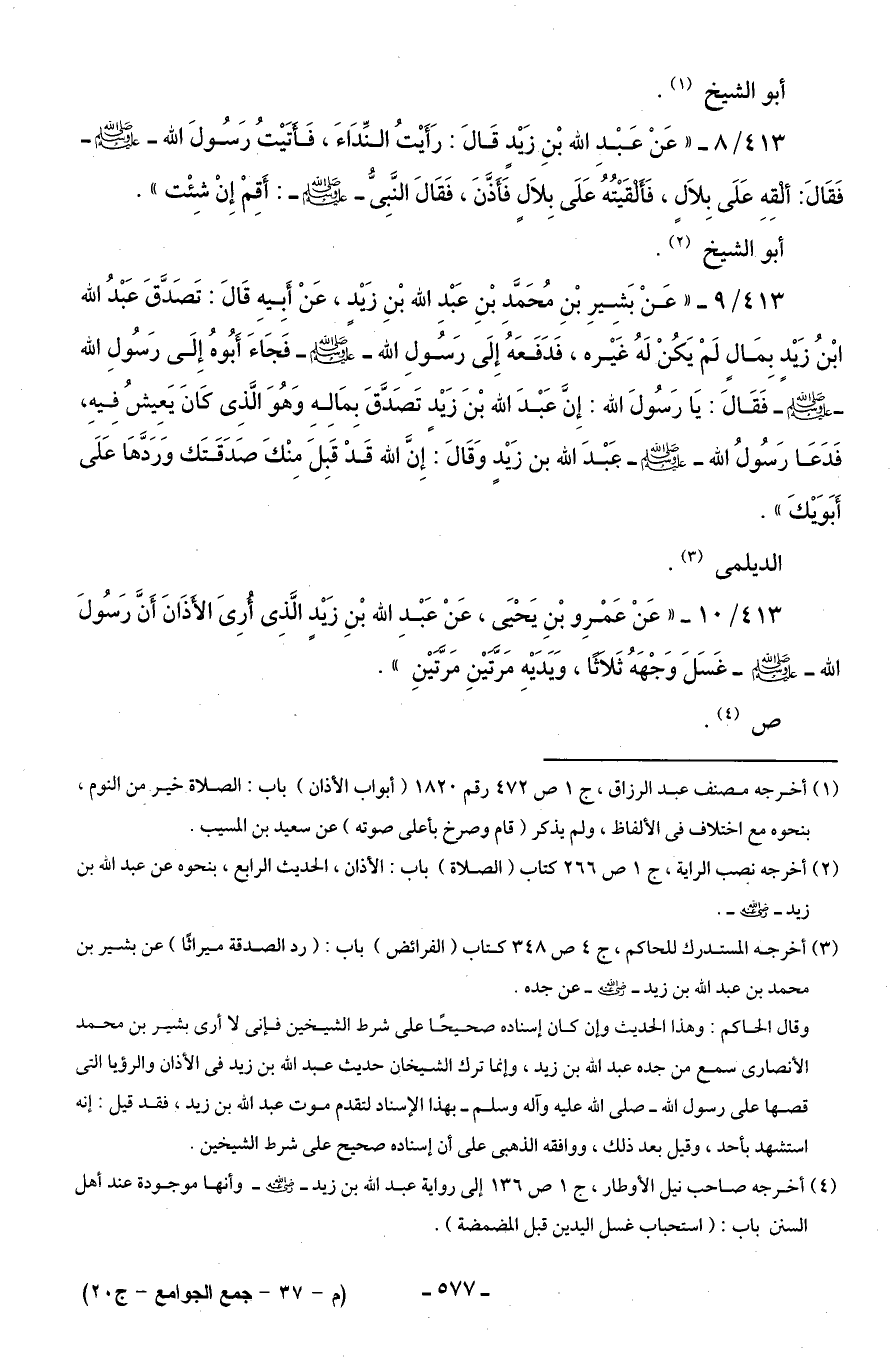 أبو الشيخ (١) .
٨/٤١٣ ـ « عَنْ عَبْدِ الله بْنِ زَيْدٍ قَالَ : رَأَيْتُ النِّدَاءَ ، فَأَتَيْتُ رَسُولَ الله ـ ﷺ ـ
فَقَالَ: ألْقِهِ عَلَى بِلاَلٍ ، فَأَلْقَيْتُهُ عَلَى بِلاَلٍ فَأَذَّنَ ، فَقَالَ النَّبِىُّ ـ ﷺ ـ : أَقِمْ إِنْ شِئْت » .
أبو الشيخ (٢) .
٩/٤١٣ ـ « عَنْ بَشِيرِ بْنِ مُحَمَّدِ بْنِ عَبْدِ الله بْنِ زَيْدٍ ، عَنْ أَبِيهِ قَالَ : تَصَدَّقَ عَبْدُ الله
ابْنُ زَيْدٍ بِمَالٍ لَمْ يَكُنْ لَهُ غَيْره ، فَدَفَعَهُ إِلَى رَسُولِ الله ـ ﷺ ـ فَجَاءَ أَبُوهُ إِلَى رَسُولِ الله
ـ ﷺ ـ فَقَالَ : يَا رَسُولَ الله : إِنَّ عَبْدَ الله بْنَ زَيْدٍ تَصَدَّقَ بِمَالِهِ وَهُوَ الَّذِى كَانَ يَعِيشُ فِيهِ،
فَدَعَا رَسُولُ الله ـ ﷺ ـ عَبْدَ الله بن زَيْدٍ وَقَالَ : إِنَّ الله قَدْ قَبِلَ مِنْكَ صَدَقَتَك وَرَدَّهَا عَلَى
أَبَوَيْكَ » .
الديلمى (٣) .
١٠/٤١٣ ـ « عَنْ عَمْرِو بْنِ يَحْيَى ، عَنْ عَبْدِ الله بْنِ زَيْدٍ الَّذِى أُرِىَ الأَذَانَ أَنَّ رَسُولَ
الله ـ ﷺ ـ غَسَلَ وَجْهَهُ ثَلاَثًا ، وَيَدَيْهِ مَرَّتَيْنِ مَرَّتَيْنِ » .
ص (٤) .
(١) أخرجه مصنف عبد الرزاق ، ج ١ ص ٤٧٢ رقم ١٨٢٠ ( أبواب الأذان ) باب : الصلاة خير من النوم ،
بنحوه مع اختلاف فى الألفاظ ، ولم يذكر ( قام وصرخ بأعلى صوته ) عن سعيد بن المسيب .
(٢) أخرجه نصب الراية ، ج ١ ص ٢٦٦ كتاب ( الصلاة ) باب : الأذان ، الحديث الرابع ، بنحوه عن عبد الله بن
زيد ـ رضي الله عنه ـ .
(٣) أخرجه المستدرك للحاكم ، ج ٤ ص ٣٤٨ كتاب ( الفرائض ) باب : ( رد الصدقة ميراثًا ) عن بشير بن
محمد بن عبد الله بن زيد ـ رضي الله عنه ـ عن جده .
وقال الحاكم : وهذا الحديث وإن كان إسناده صحيحًا على شرط الشيخين فإنى لا أرى بشير بن محمد
الأنصارى سمع من جده عبد الله بن زيد ، وإنما ترك الشيخان حديث عبد الله بن زيد فى الأذان والرؤيا التى
قصها على رسول الله ـ صلى الله عليه وآله وسلم ـ بهذا الإسناد لتقدم موت عبد الله بن زيد ، فقد قيل : إنه
استشهد بأحد ، وقيل بعد ذلك ، ووافقه الذهبى على أن إسناده صحيح على شرط الشيخين .
(٤) أخرجه صاحب نيل الأوطار ، ج ١ ص ١٣٦ إلى رواية عبد الله بن زيد ـ رضي الله عنه ـ وأنها موجودة عند أهل
السنن باب : ( استحباب غسل اليدين قبل المضمضة ) .
ـ ٥٧٧ ـ
(م - ٣٧ - جمع الجوامع - ج٢٠)